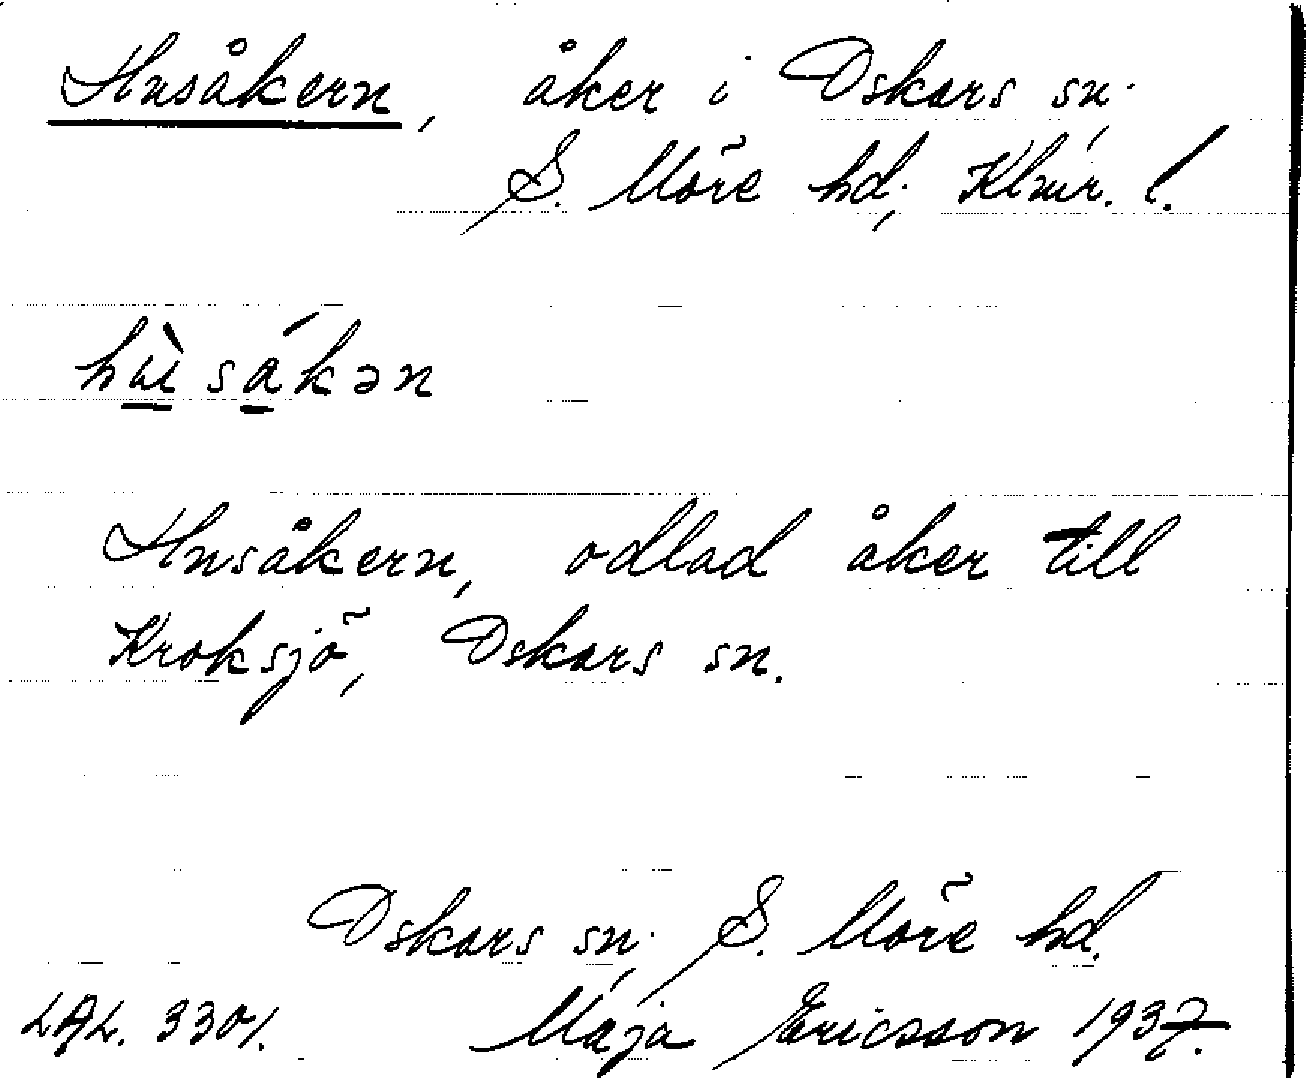 Husåkern, åker i Oskars sn.,
S. Möre hd., Klmr. l.
hùsákən
Husåkern, odlad åker till
Kroksjö, Oskars sn.
Oskars sn., S. Möre hd.
LAL. 3301. Maja Ericsson 1937.